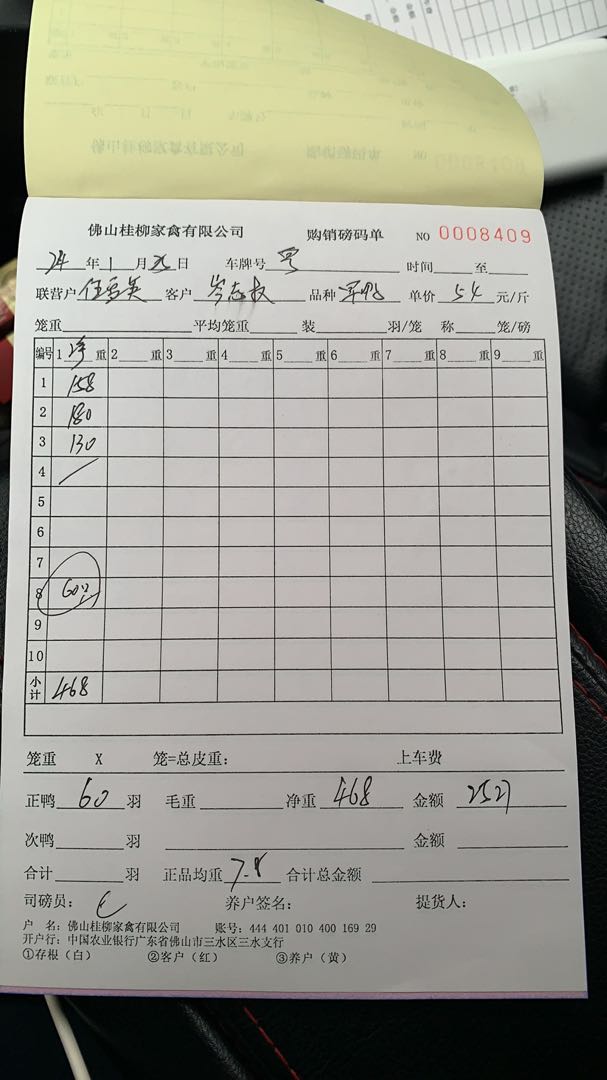 佛山桂柳家禽有限公司 购销磅码单 NO 0008409
24年1月 日 车牌号 时间 至
联营户 客户 岑志权 品种 单价 5.4 元/斤
笼重 平均笼重 装 羽/笼 称 笼/磅
编号 1 净 重 2 重 3 重 4 重 5 重 6 重 7 重 8 重 9 重
1 158
2 180
3 130
4
5
6
7
8 60只
9
10
小计 468
笼重 X 笼=总皮重: 上车费
正鸭 60 羽 毛重 净重 468 金额 2527
次鸭 羽 金额
合计 羽 正品均重 7.8 合计总金额
司磅员: 养户签名: 提货人:
户 名: 佛山桂柳家禽有限公司 账号: 444 401 010 400 169 29
开户行: 中国农业银行广东省佛山市三水区三水支行
①存根（白） ②客户（红） ③养户（黄）